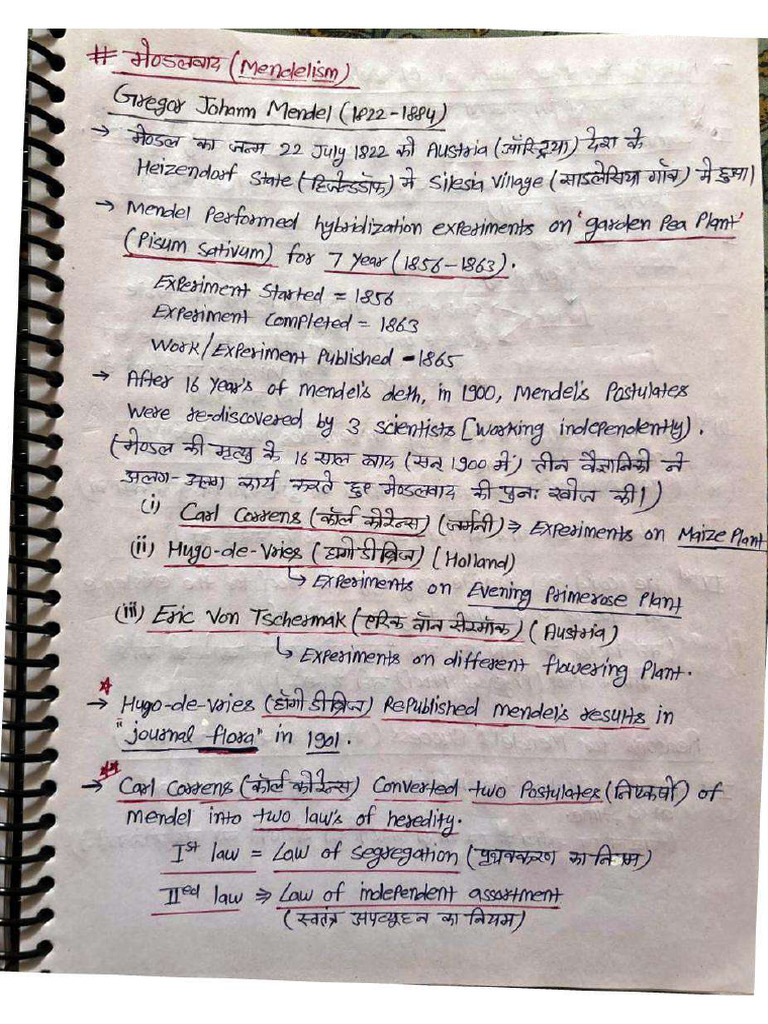 # मेण्डलवाद (Mendelism)
Gregor Johann Mendel (1822-1884)
→ मेण्डल का जन्म 22 July 1822 को Austria (ऑस्ट्रिया) देश के
Heizendorf State (हिजेनडॉर्फ) में Silesia Village (साइलेसिया गाँव) में हुआ।
→ Mendel Performed hybridization experiments on 'garden Pea Plant'
(Pisum Sativum) for 7 Year (1856-1863).
Experiment Started = 1856
Experiment Completed = 1863
Work/Experiment Published - 1865
→ After 16 Year's of mendel's deth, in 1900, Mendel's Postulates
were re-discovered by 3 scientists [working independently).
(मेण्डल की मृत्यु के 16 साल बाद (सन् 1900 में) तीन वैज्ञानिको ने
अलग-अलग कार्य करते हुए मेण्डलवाद की पुनः खोज की।)
(i) Carl Correns (कॉर्ल कोरेन्स) (जर्मनी) ⇒ Experiments on Maize Plant
(ii) Hugo-de-Vries (हॉगो डी व्रिज) (Holland)
↳ Experiments on Evening Primerose Plant
(iii) Eric Von Tschermak (एरिक वॉन शेरमॉक) (Austria)
↳ Experiments on different flowering Plant.
→ Hugo-de-vries (हॉगो डी व्रिज) Republished mendel's results in
"journal flora" in 1901.
→ Carl Correns (कॉर्ल कोरेन्स) Converted two Postulates (निष्कर्षो) of
Mendel into two law's of heredity.
Ist law = Law of segregation (पृथक्करण का नियम)
IIed law ⇒ Law of independent assortment
(स्वतंत्र अपव्यूहन का नियम)